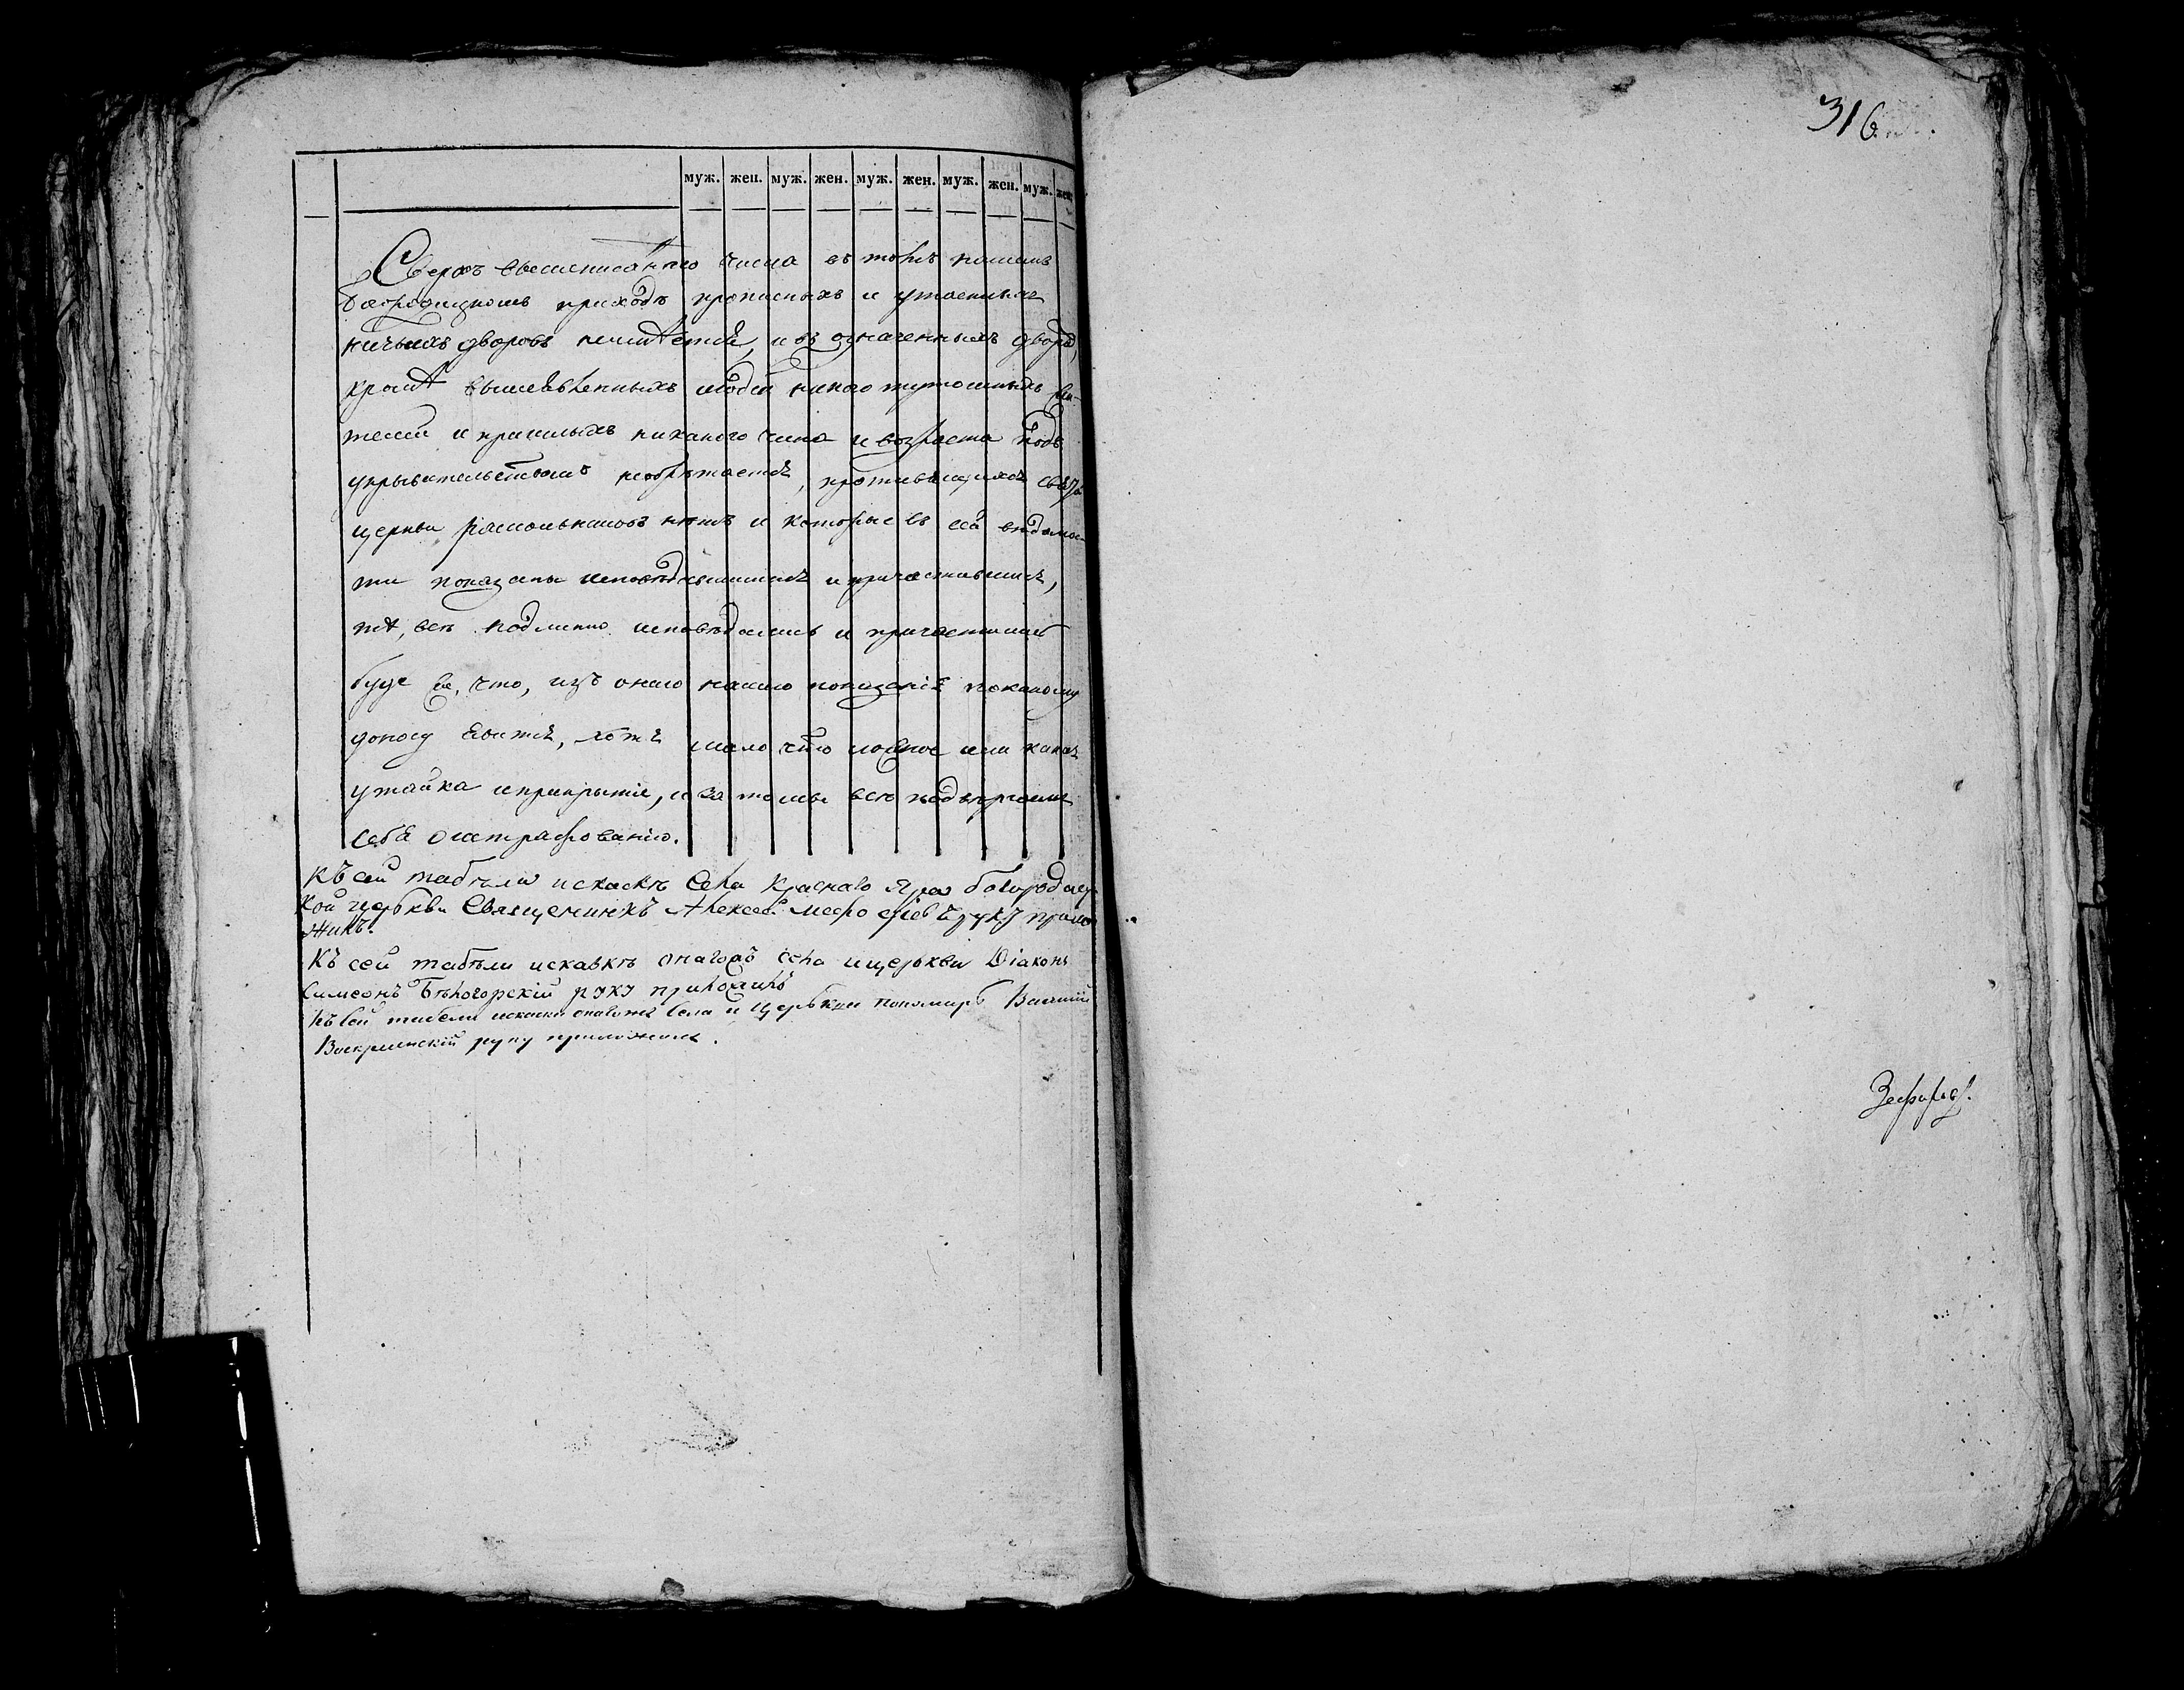 316
муж. жен. муж. жен. муж. жен. муж. жен. муж. жен.
Сверхъ вышеписаннаго числа въ томъ нашемъ
Богородицкомъ приходѣ прописныхъ и утаенныхъ
ничьихъ дворовъ неимѣется, и въ означенныхъ двора
кромѣ вышеявленныхъ людей никого тутошнихъ жи-
телей и пришлыхъ никакого чина и возраста подъ
укрывательствомъ необрѣтается, противящихся свят
церкви раскольниковъ нѣтъ и которые въ сей вѣдомос-
ти показаны исповѣдавшимися и причастившимися,
тѣ, всѣ подлинно исповѣдались и причастились
буде же, что, изъ онаго нашего показанія покакому
доносу явится, хотя мало что ложное или какая
утайка и прикрытіе, и за то мы всѣ подвергаемъ
себя оштрафованію.
Къ сей табѣли искаскѣ Села Краснаго Яра богородиц
кой церькви Священникъ Алексей руку прило
жилъ.
Къ сей табѣли искавкѣ онагожъ села ицерькви Діаконъ
Симеонъ Бѣлогорскій руку приложилъ
Къ сей табели искаски онагожъ села и Церькви пономарь Василій
Воскресенскій руку приложилъ.